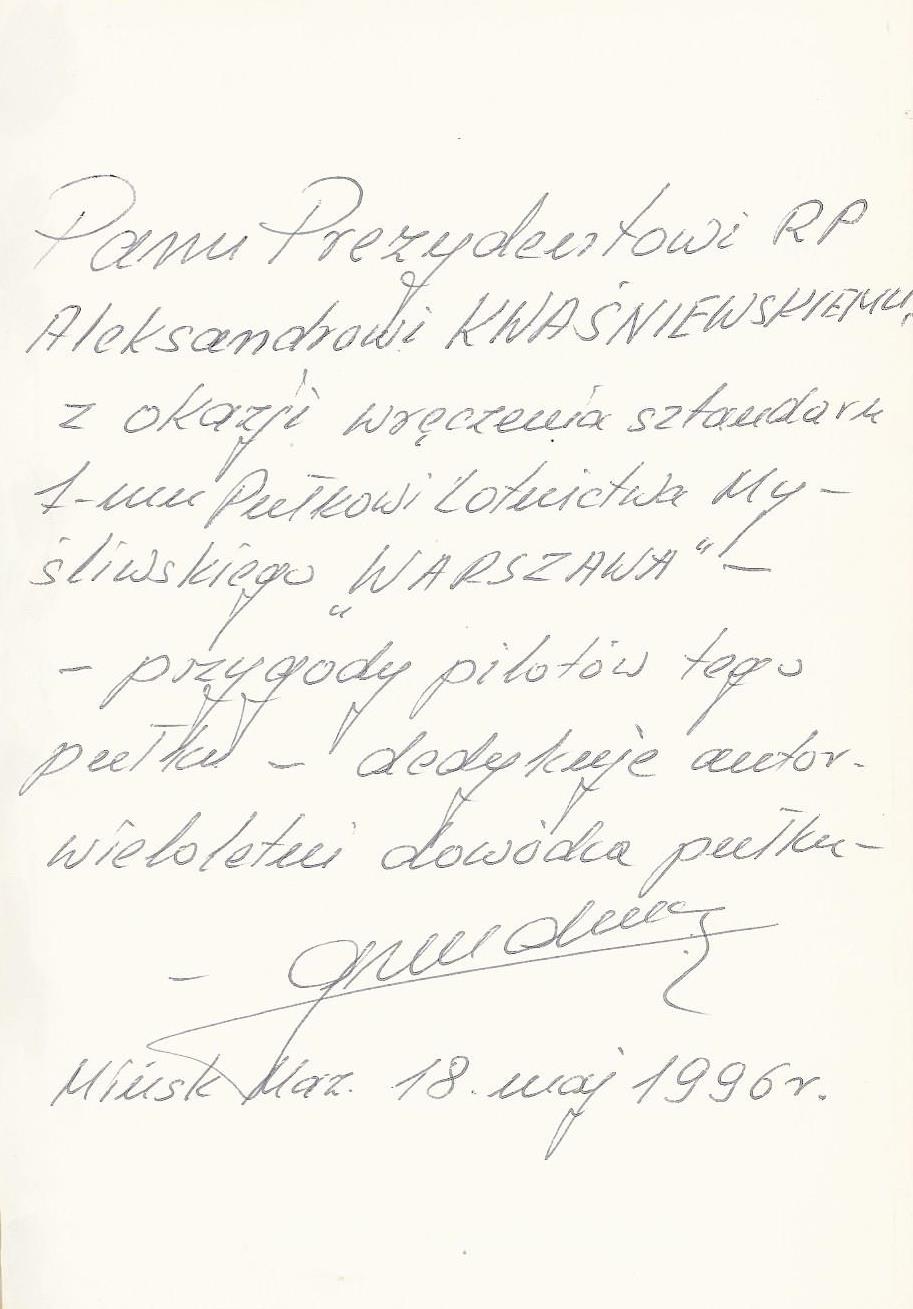 Panu Prezydentowi RP
Aleksandrowi KWAŚNIEWSKIEMU,
z okazji wręczenia sztandaru
1-mu Pułkowi Lotnictwa My-
śliwskiego „WARSZAWA” –
– przygody pilotów tego
pułku – dedykuje autor-
wieloletni dowódca pułku-
–
Mińsk Maz. 18. maj 1996r.